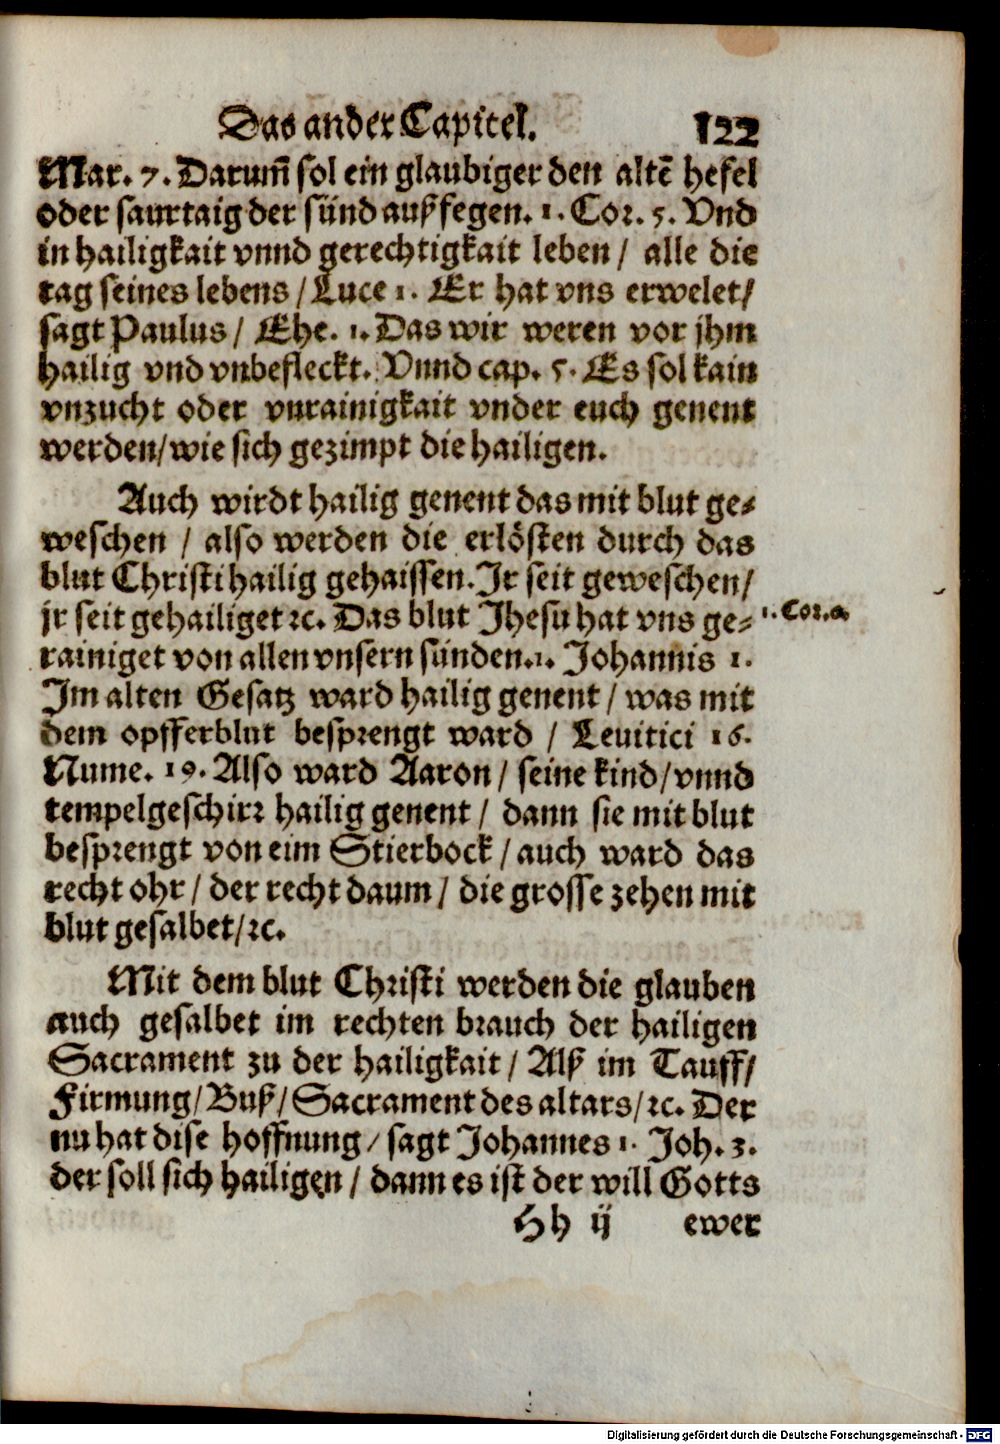 Das ander Capitel. 122
Mar. 7. Darum̄ sol ein glaubiger den altē hefel
oder saurtaig der sünd außfegen. 1. Cor. 5. Vnd
in hailigkait vnnd gerechtigkait leben / alle die
tag seines lebens / Luce 1. Er hat vns erwelet/
sagt Paulus / Ehe. 1. Das wir weren vor jhm
hailig vnd vnbefleckt. Vnnd cap. 5. Es sol kain
vnzucht oder vnrainigkait vnder euch genent
werden/wie sich gezimpt die hailigen.
Auch wirdt hailig genent das mit blut ge-
weschen / also werden die erlösten durch das
blut Christi hailig gehaissen. Jr seit geweschen/
jr seit gehailiget ꝛc. Das blut Jhesu hat vns ge-
1. Cor. 6.
rainiget von allen vnsern sünden. 1. Johannis 1.
Jm alten Gesatz ward hailig genent / was mit
dem opfferblut besprengt ward / Leuitici 16.
Nume. 19. Also ward Aaron / seine kind/vnnd
tempelgeschirr hailig genent / dann sie mit blut
besprengt von eim Stierbock / auch ward das
recht ohr / der recht daum / die grosse zehen mit
blut gesalbet/ꝛc.
Mit dem blut Christi werden die glauben
auch gesalbet im rechten brauch der hailigen
Sacrament zu der hailigkait / Alß im Tauff/
Firmung/Buß/Sacrament des altars/ꝛc. Der
nu hat dise hoffnung / sagt Johannes 1. Joh. 3.
der soll sich hailigen / dann es ist der will Gotts
Hh ij ewer
Digitalisierung gefördert durch die Deutsche Forschungsgemeinschaft - DFG